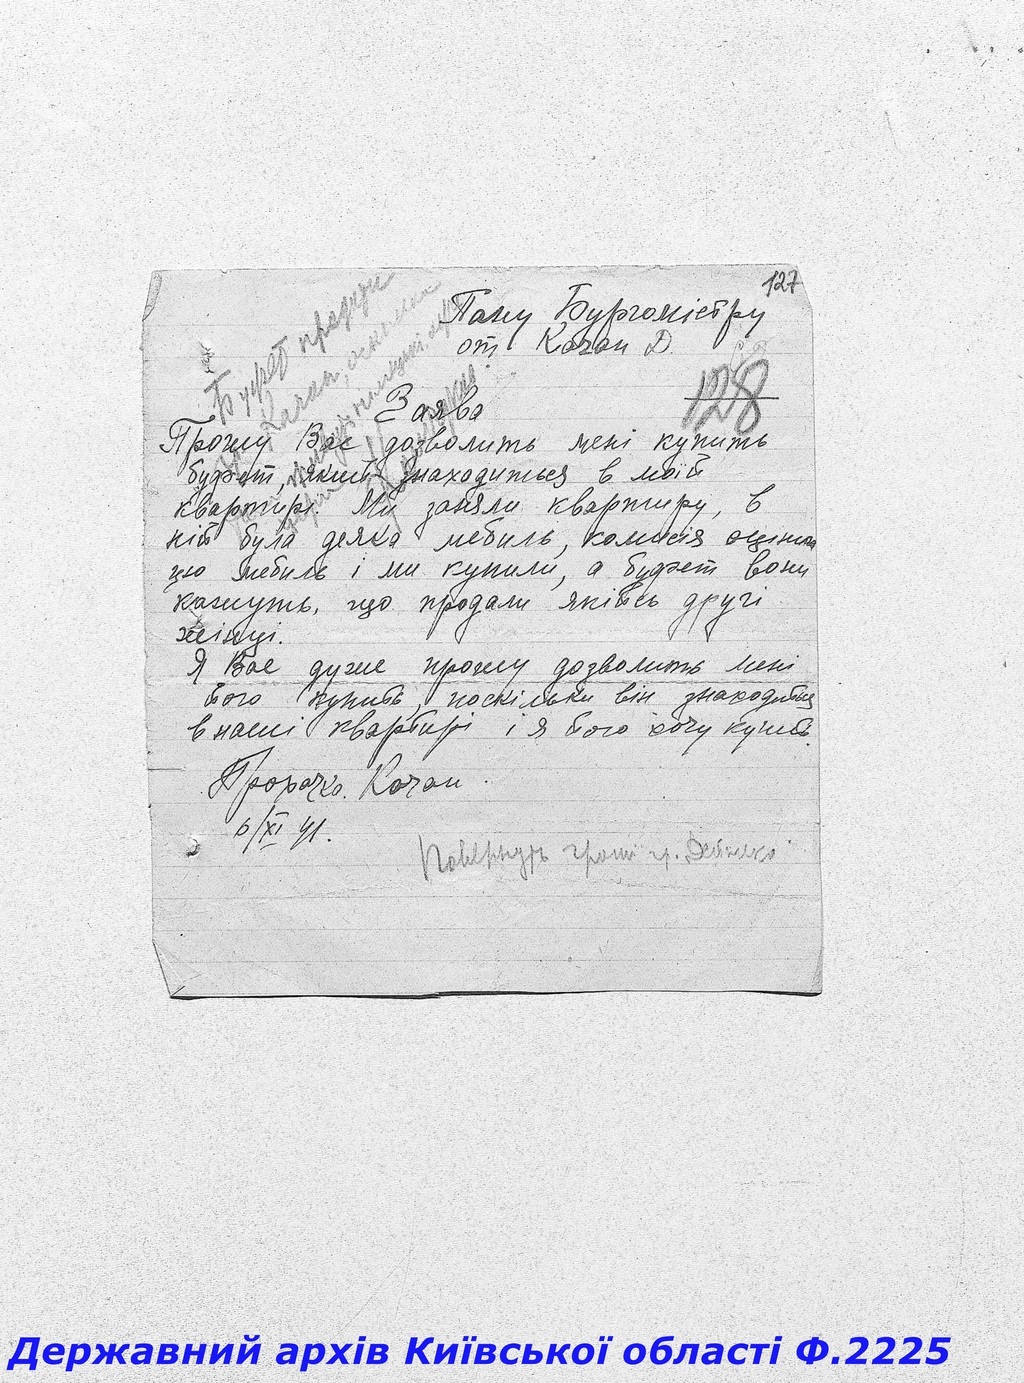 127
Пану Бургомістру
от Качан Д
128
Заява
Прошу Вас дозволить мені купить
буфет, який знаходиться в моїй
квартирі. Ми заняли квартиру, в
ній була деяка мебиль, комисія оцінила
цю мебиль і ми купили, а буфет вони
кажуть, що продали якійсь другі
жінці.
Я Вас дуже прошу дозволить мені
його купить, поскільки він знаходиться
в наші квартирі і я його хочу купить.
Качан
6/XI 41.
Буфет продати
Качан,
Повернуть гроші гр.
Державний архів Київської області Ф.2225